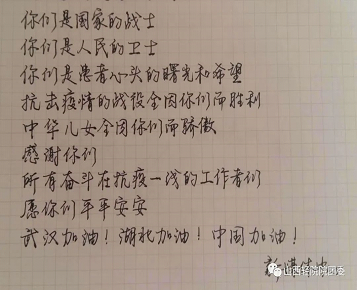 你们是国家的战士
你们是人民的卫士
你们是患者心头的曙光和希望
抗击疫情的战役会因你们而胜利
中华儿女会因你们而骄傲
感谢你们
所有奋斗在抗疫一线的工作者们
愿你们平平安安
武汉加油！湖北加油！中国加油！
山西轻院院团委